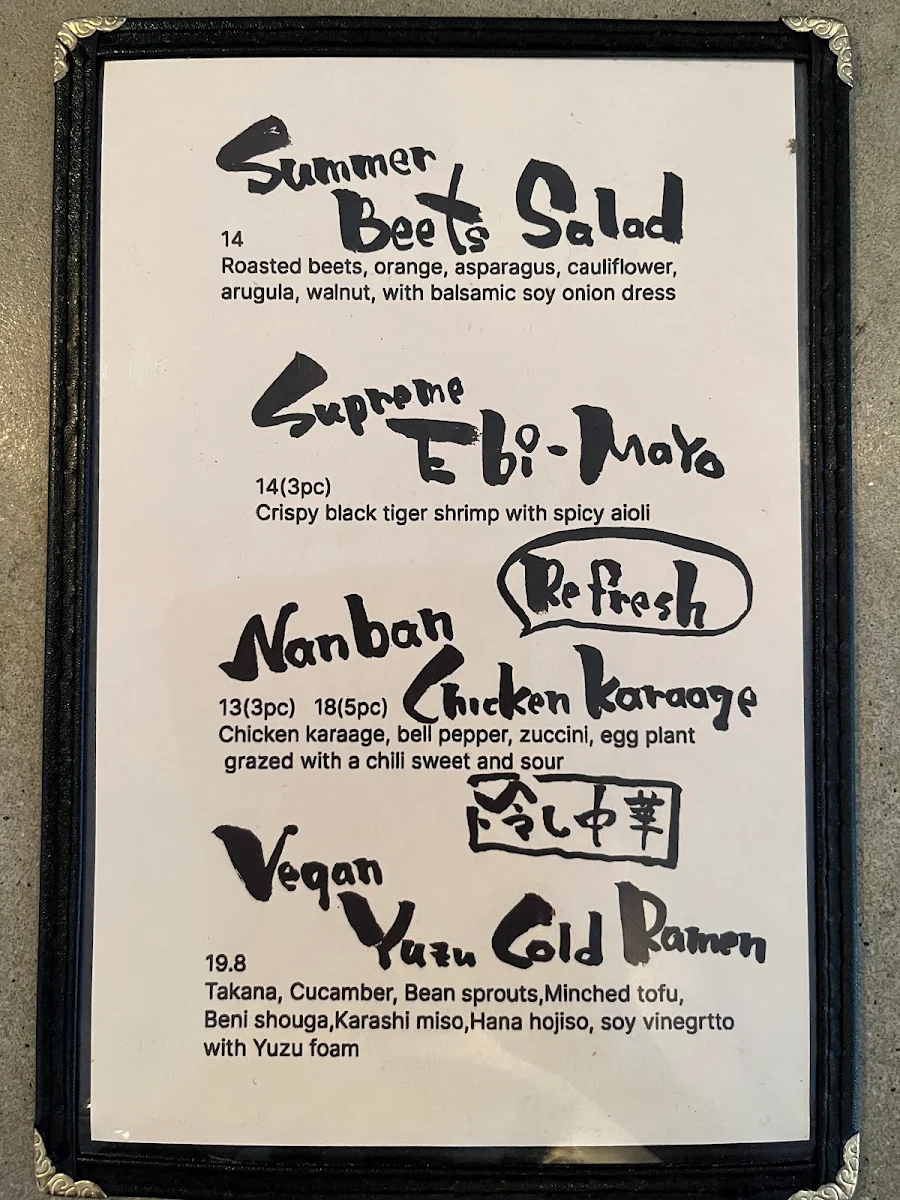 Summer
Beets Salad
14
Roasted beets, orange, asparagus, cauliflower,
arugula, walnut, with balsamic soy onion dress
Supreme
Ebi-Mayo
14(3pc)
Crispy black tiger shrimp with spicy aioli
Refresh
Nanban
Chicken Karaage
13(3pc) 18(5pc)
Chicken karaage, bell pepper, zuccini, egg plant
grazed with a chili sweet and sour
冷し中華
Vegan
Yuzu Cold Ramen
19.8
Takana, Cucamber, Bean sprouts,Minched tofu,
Beni shouga,Karashi miso,Hana hojiso, soy vinegrtto
with Yuzu foam